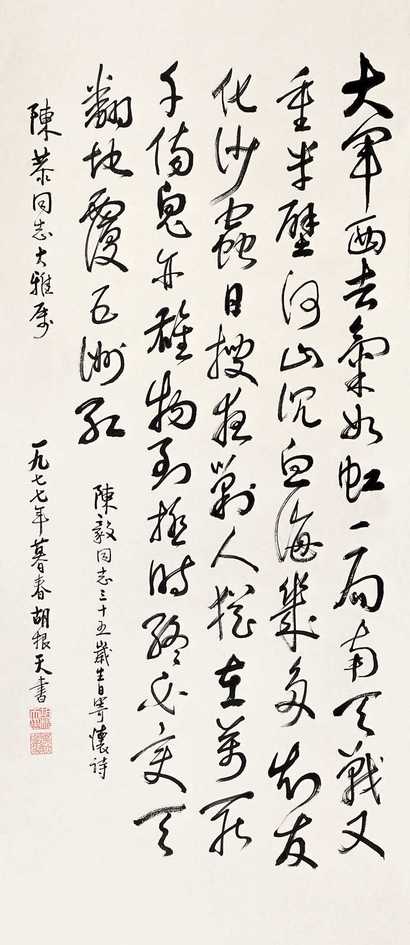 大军西去氣如虹一局南天戰又
重半壁河山沉血海幾多知友
化沙蟲日搜夜剿人猶在萬死
千傷鬼亦雄物到極時終必变天
翻地覆五洲红
陳毅同志三十五歲生日寄懷詩
陳恭同志大雅属
一九七七年暮春胡根天書